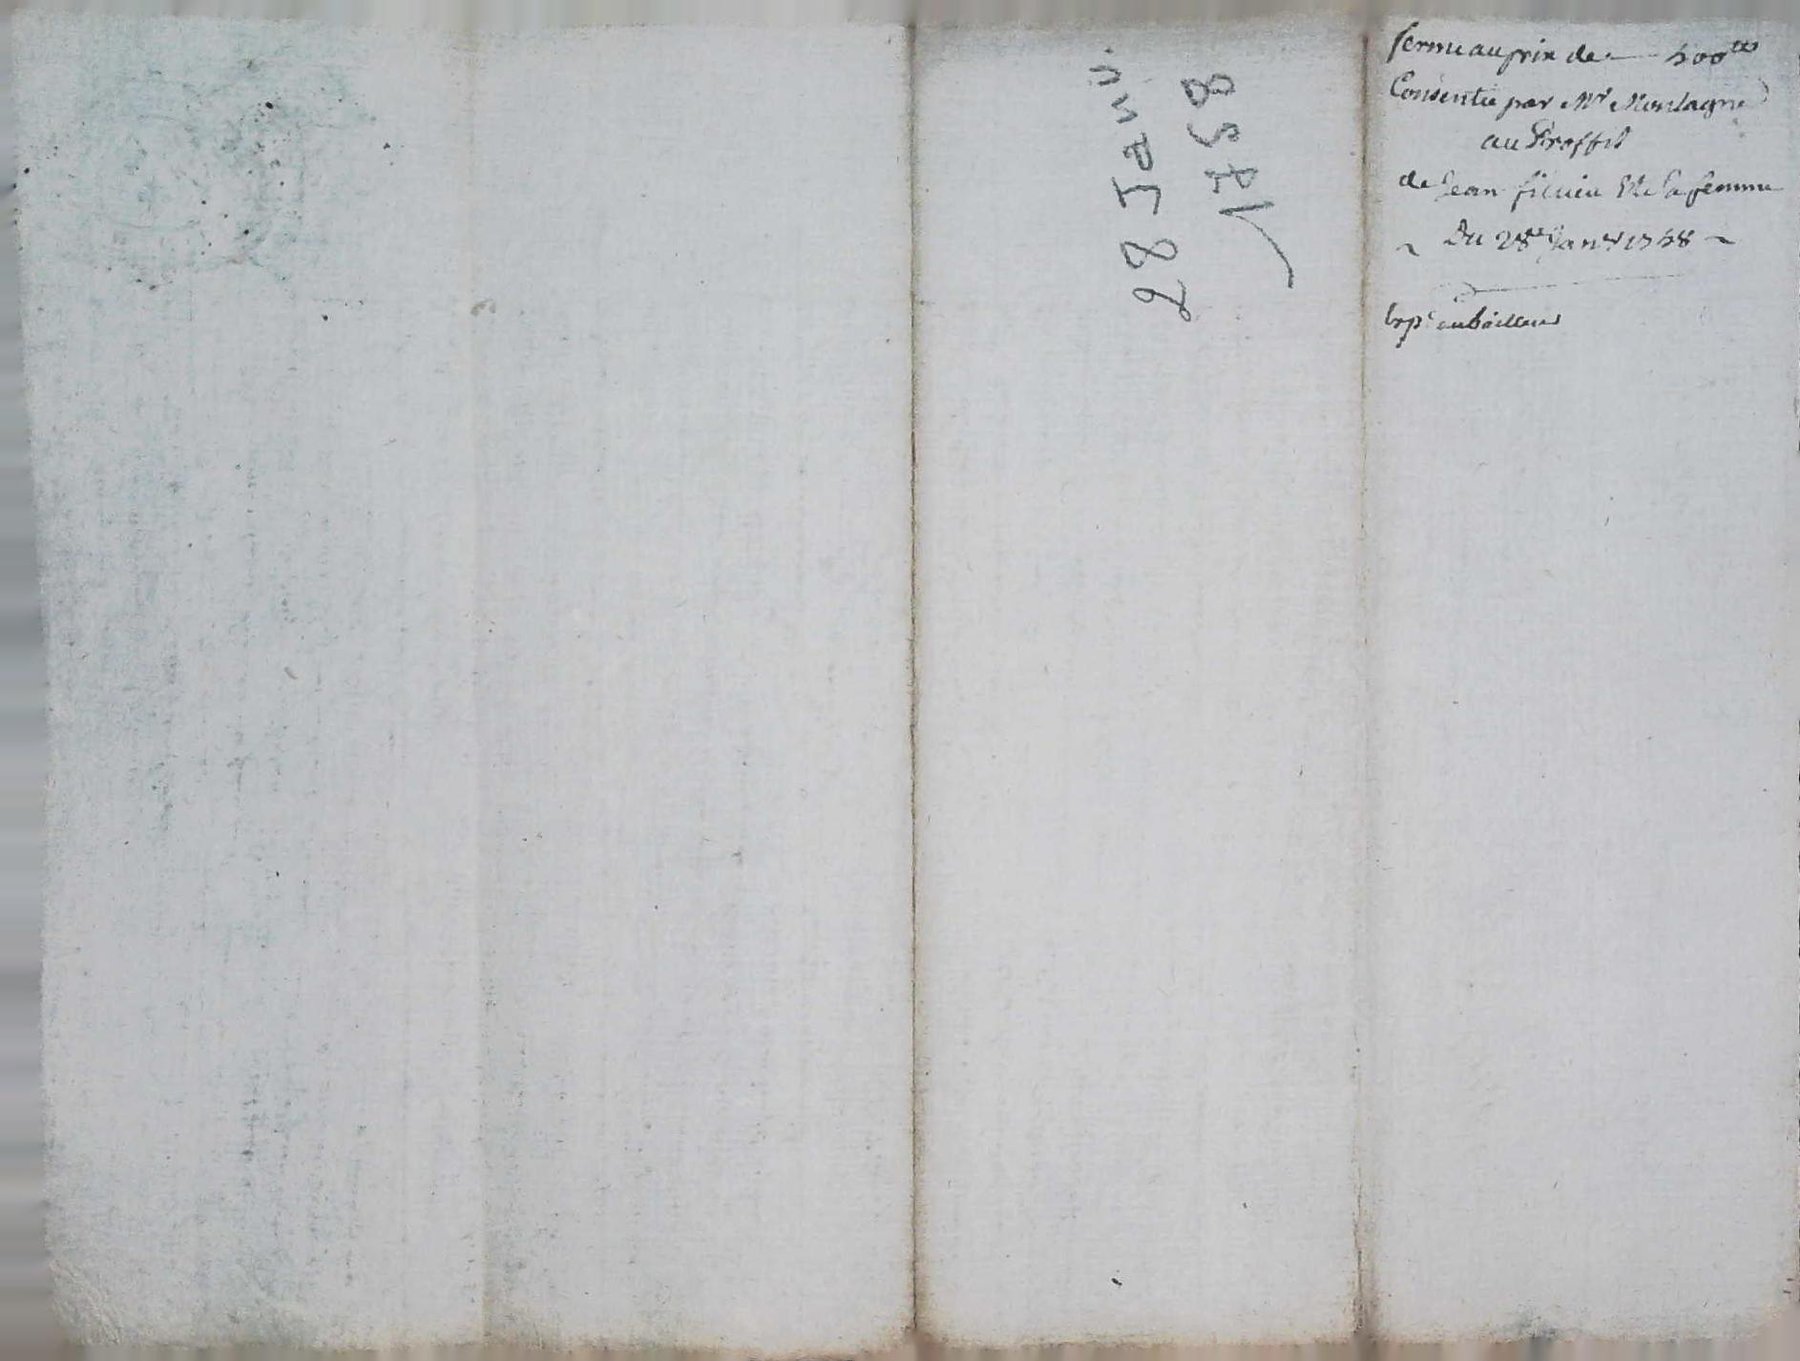 28 Janv.
1758
ferme au prix de — 500tt
Consentie par Mr Montagne
au Proffit
de Jean filieu Et Sa femme
~ Du 28e Janer 1758 ~
Exp. au bailleur